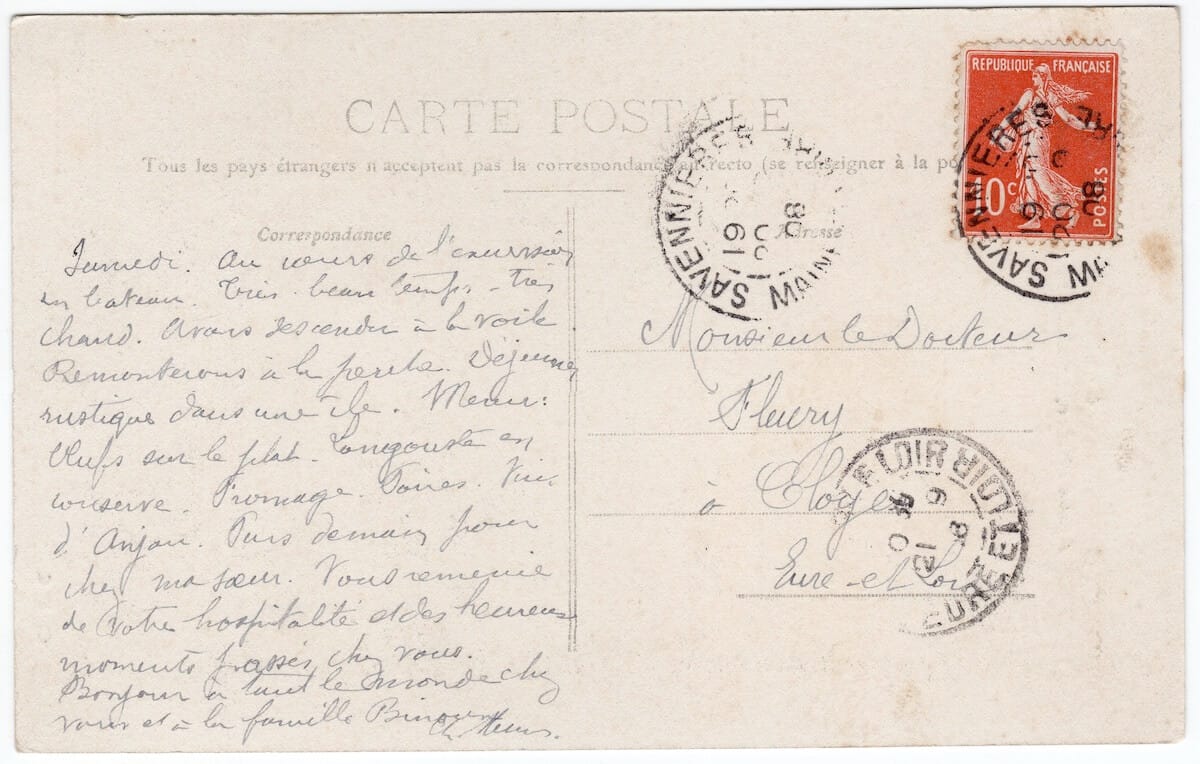 REPUBLIQUE FRANÇAISE
10c
POSTES
CARTE POSTALE
Tous les pays étrangers n'acceptent pas la correspondance au recto (se renseigner à la po
SAVENNIERES
SAVENNIERES
Correspondance
Adresse
Samedi. Au cours de l'excursion
en bateau. Très beau temps - très
chaud. Avons descendu à la voile
Remonterons à la perche. Déjeuner
rustique dans une île. Menu:
Œufs sur le plat. Langouste en
conserve. Fromage. Poires. Vin
d'Anjou. Pars demain pour
chez ma sœur. Vous remercie
de votre hospitalité et des heureux
moments passés chez vous.
Bonjour à tout le monde chez
vous et à la famille
Monsieur le Docteur
Fleury
à Cloyes
Eure-et-Loir
EURE ET LOIR